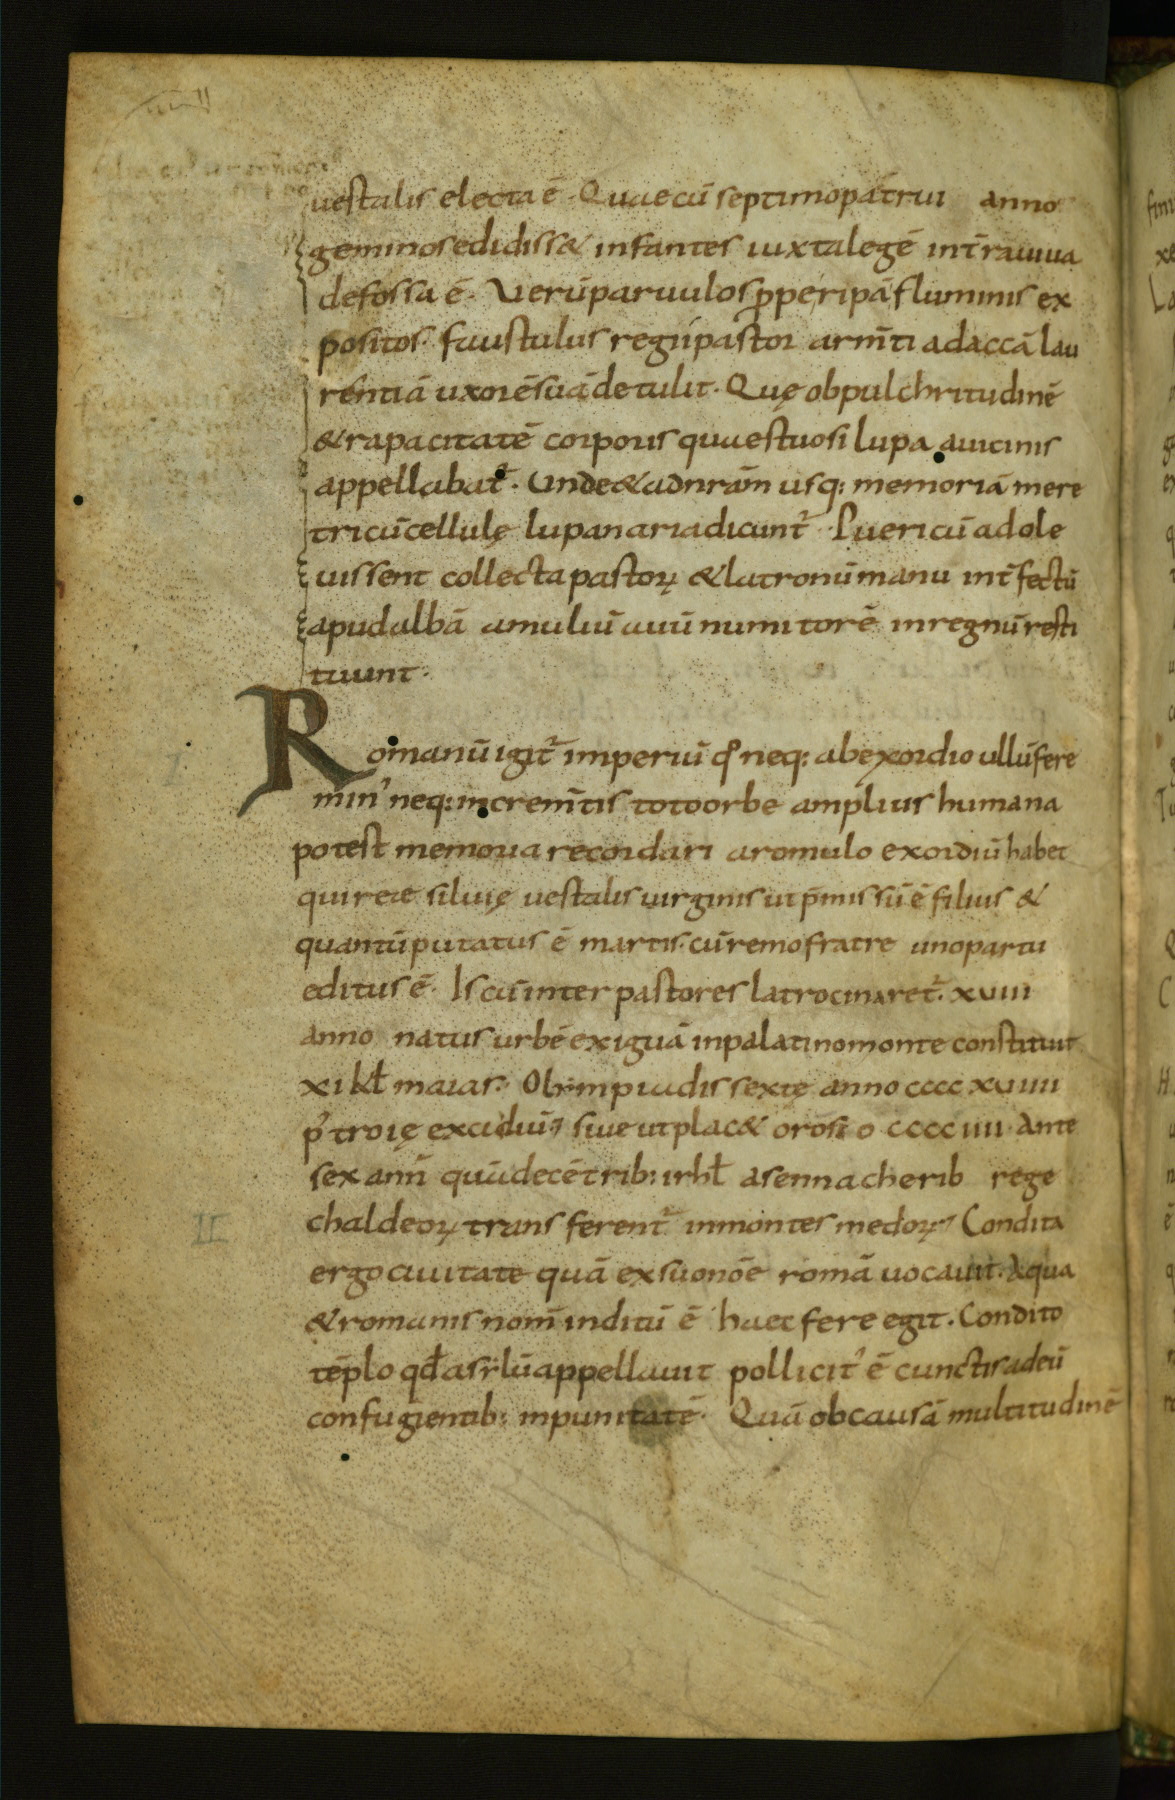 uestalis electa ē. Quae cū septimo patrui anno
geminos edidiss& infantes iuxta legē int̄ra uiua
defossa ē. Uerū paruulos ꝓpe ripā fluminis ex
positos. faustulus regii pastor arm̄ti ad accā lau
rentiā uxorē suā detulit. Quę ob pulchritudinē
& rapacitatē corporis quaestuosi lupa a uicinis
appellabat̄. Unde & ad nr̄am usq: memoriā mere
tricū cellulę lupanaria dicunt̄. Pueri cū adole
uissent collecta pastorꝝ & latronū manu int̄fectū
apud albā amuliū auū numitorē in regnū resti
tuunt.
Romanū igit̄ imperiū q̊ neq: ab exordio ullū fere
min' neq: increm̄tis toto orbe amplius humana
potest memoria recordari a romulo exordiū habet
qui reae siluię uestalis uirginis ut p̄missū ē filius &
quantū putatus ē martis. cū remo fratre uno partu
editus ē. Is cū inter pastores latrocinaret̄. xuiii
anno natus urbē exiguā in palatino monte constituit
xi kl̄ maias. Olimpiadis sextę anno cccc xuiiii
p' troię excidiū; siue ut plac& orosio cccc iiii. Ante
sex ann̄ quā decē trib: irhl̄ a sennacherib rege
chaldeorꝝ transferent̄ in montes medorꝝ; Condita
ergo ciuitate quā ex suo nōe romā uocauit. A qua
& romanis nom̄ inditū ē haec fere egit. Condito
tēplo qd̄ asẏlū appellauit pollicit' ē cunctis ad eū
confugientib: inpunitatē. Quā ob causā multitudinē
I
II